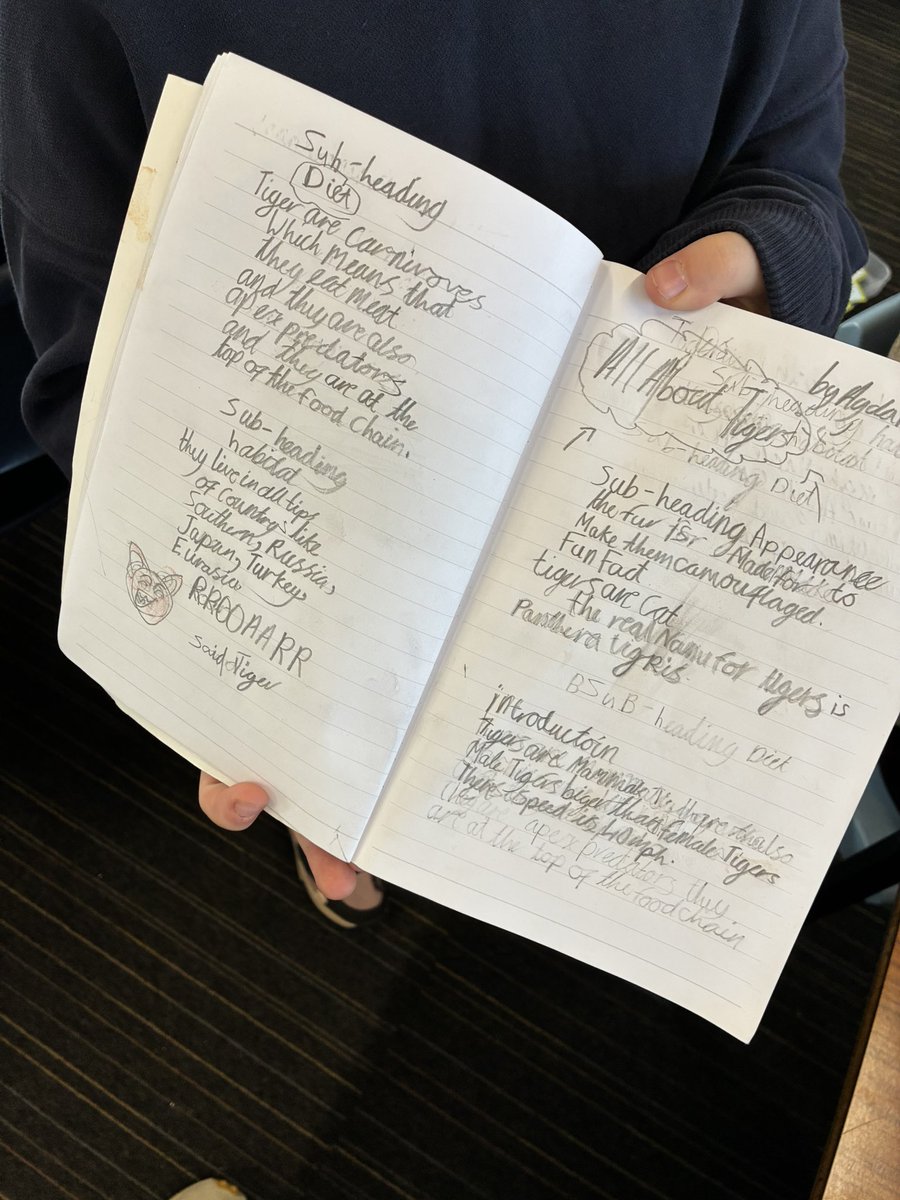 Sub-heading
Diet
Tiger are Carnivoves
Which means that
they eat meat
and thy are also
apex predatores
and they are at the
top of the food chain.
Sub-heading
habitat
they live in all tips
of Countrys like
Southern, Russia,
Japan, Turkey,
Eurasia.
RRROOAARR
Said Tiger
All About Tigers
by
Sub-heading Diet
Sub-heading Appearance
the fur is Made for to
Make them camouflaged.
Fun Fact
tigers are Cat
the real Name for tigers is
Panthera tigris
Sub-heading Diet
introductoin
Tigers are Mammals also
Male Tigers biger than female Tigers
There speed is 40mph.
apex predators they
are at the top of the food chain